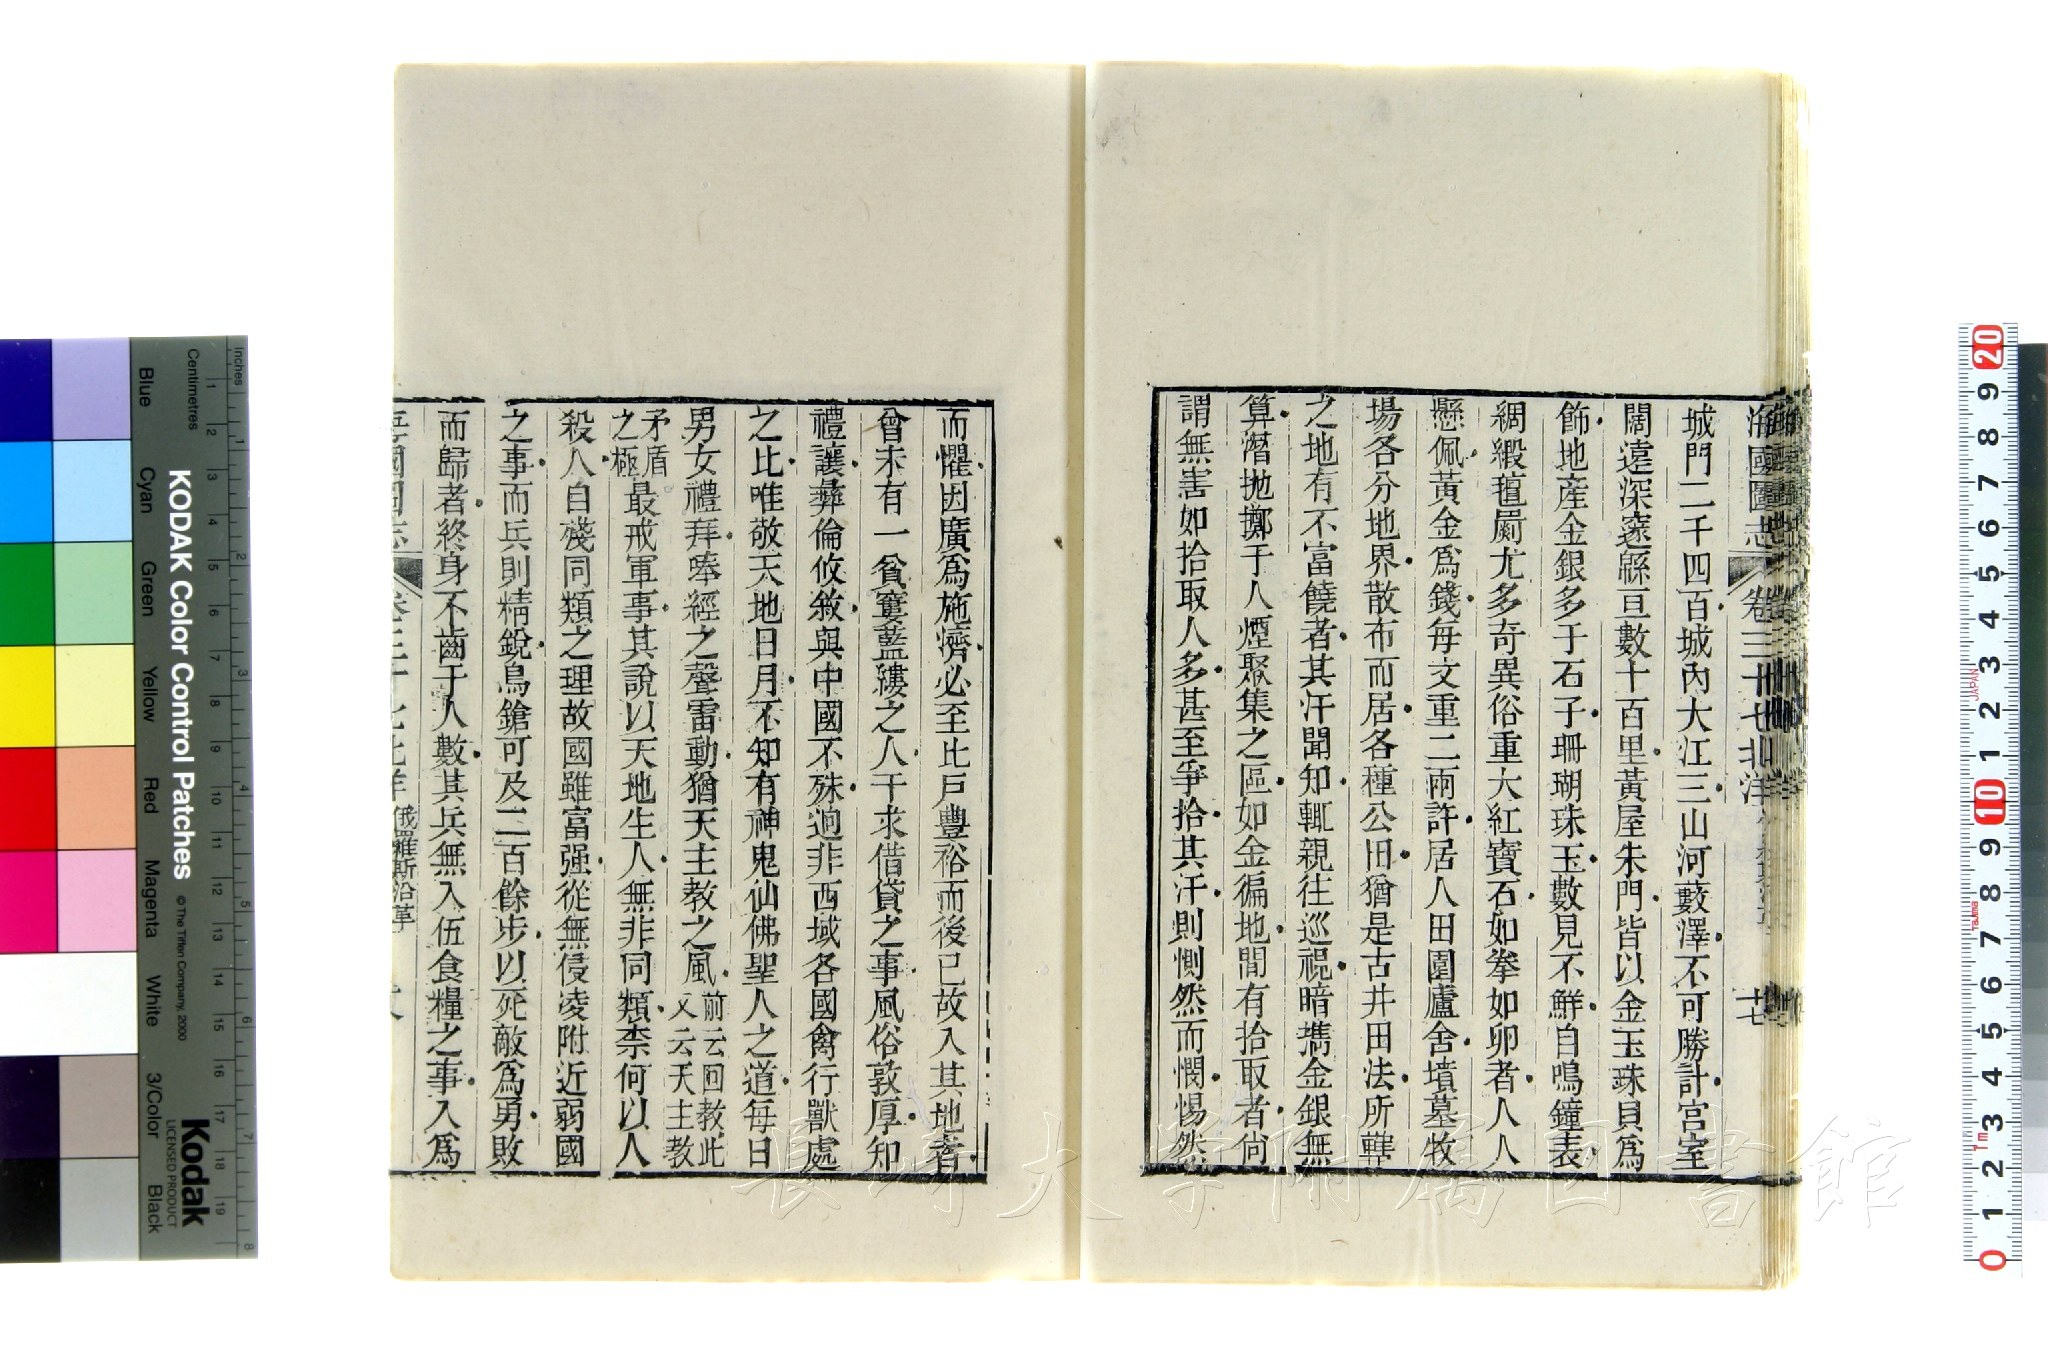 海國圖志 卷三十七 北洋 十七
城門二千四百城內大江三山河藪澤不可勝計宮室
闊遠深邃緜亘數十百里黃屋朱門皆以金玉珠貝爲
飾地産金銀多于石子珊瑚珠玉數見不鮮自鳴鐘表
綢緞氊罽尤多奇異俗重大紅寶石如拳如卵者人人
懸佩黃金爲錢每文重二兩許居人田園廬舍墳墓牧
場各分地界散布而居各種公田猶是古井田法所轄
之地有不富饒者其汗聞知輒親往巡視暗攜金銀無
算潛抛擲于人煙聚集之區如金徧地間有拾取者尙
謂無害如拾取人多甚至爭拾其汗則惻然而憫惕然
而懼因廣爲施濟必至比戶豐裕而後已故入其地者
曾未有一貧窶藍縷之人干求借貸之事風俗敦厚知
禮讓彝倫攸敘與中國不殊迥非西域各國禽行獸處
之比唯敬天地日月不知有神鬼仙佛聖人之道每日
男女禮拜唪經之聲雷動猶天主教之風前云回教此
又云天主教
矛盾
之極
最戒軍事其說以天地生人無非同類柰何以人
殺人自殘同類之理故國雖富强從無侵凌附近弱國
之事而兵則精銳鳥鎗可及二百餘步以死敵爲勇敗
而歸者終身不齒于人數其兵無入伍食糧之事人爲
海國圖志 卷三十七 北洋 俄羅斯沿革
Inches
Centimetres
Blue Cyan Green Yellow Red Magenta White 3/Color Black
KODAK Color Control Patches ©The Tiffen Company, 2000
Kodak
LICENSED PRODUCT
1 2 3 4 5 6 7 8 9 10 11 12 13 14 15 16 17 18 19
1 2 3 4 5 6 7 8
20 9 8 7 6 5 4 3 2 1 10 9 8 7 6 5 4 3 2 1 0
JAPAN
長崎大学附属図書館